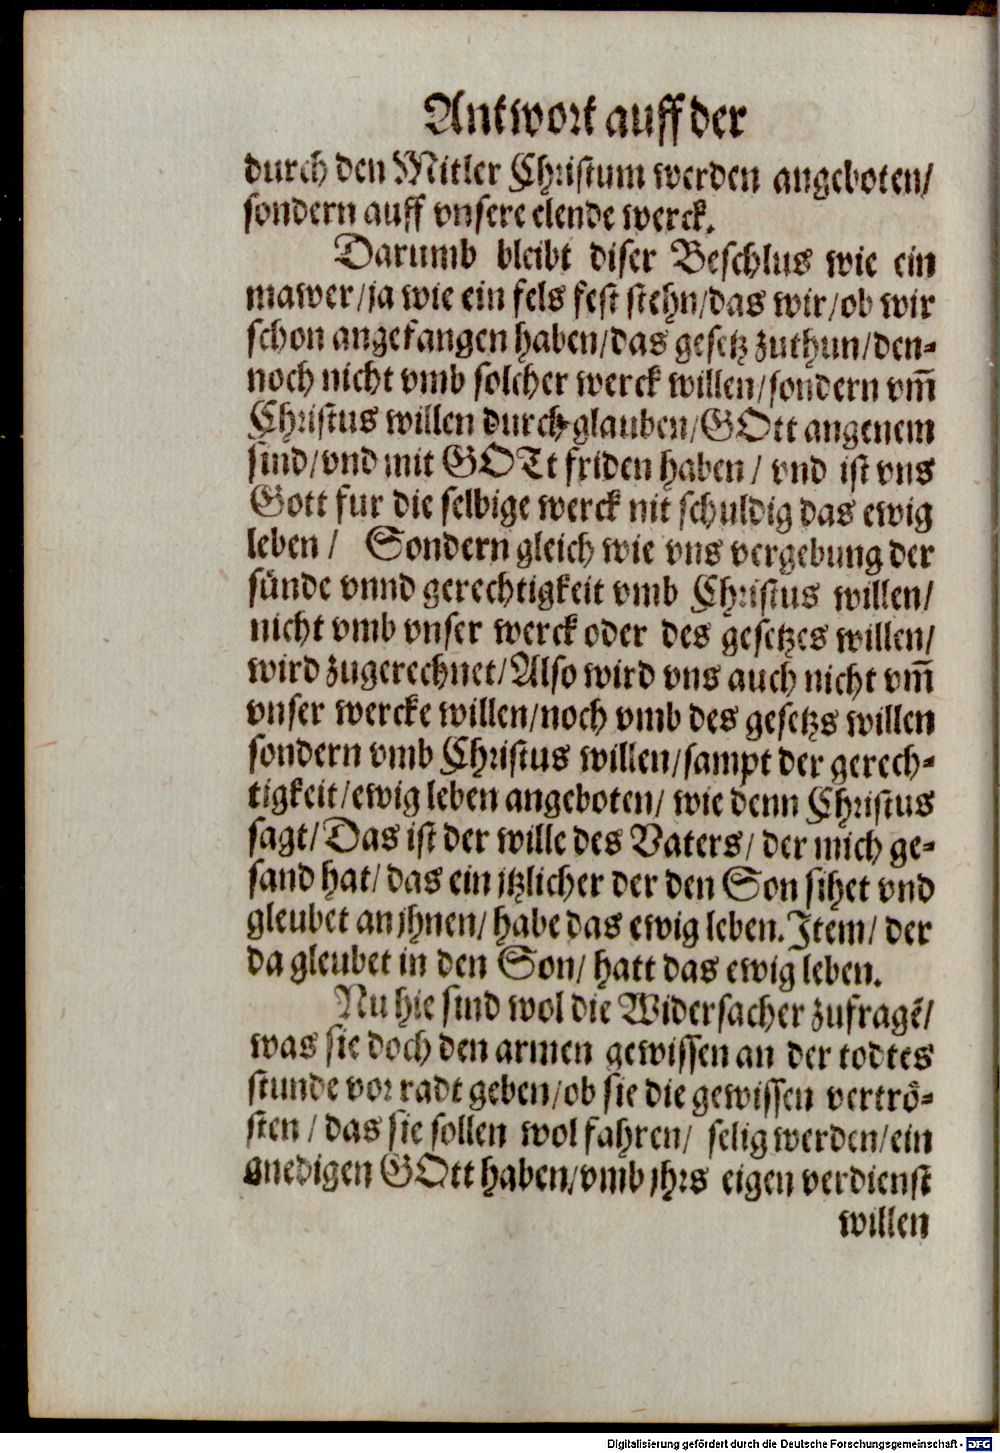 Antwort auff der
durch den Mitler Christum werden angeboten/
sondern auff vnsere elende werck.
Darumb bleibt diser Beschlus wie ein
mawer/ja wie ein fels fest stehn/das wir/ob wir
schon angefangen haben/das gesetz zuthun/den-
noch nicht vmb solcher werck willen/sondern vm̄
Christus willen durch glauben/GOtt angenem
sind/vnd mit GOTt friden haben/ vnd ist vns
Gott fur die selbige werck nit schuldig das ewig
leben / Sondern gleich wie vns vergebung der
sünde vnnd gerechtigkeit vmb Christus willen/
nicht vmb vnser werck oder des gesetzes willen/
wird zugerechnet/Also wird vns auch nicht vm̄
vnser wercke willen/noch vmb des gesetzs willen
sondern vmb Christus willen/sampt der gerech-
tigkeit/ewig leben angeboten/ wie denn Christus
sagt/Das ist der wille des Vaters/ der mich ge-
sand hat/ das ein jtzlicher der den Son sihet vnd
gleubet an jhnen/ habe das ewig leben. Item/ der
da gleubet in den Son/ hatt das ewig leben.
Nu hie sind wol die Widersacher zufragē/
was sie doch den armen gewissen an der todtes
stunde vor radt geben/ob sie die gewissen vertrö-
sten / das sie sollen wol fahren/ selig werden/ein
gnedigen GOtt haben/vmb jhrs eigen verdienst
willen
Digitalisierung gefördert durch die Deutsche Forschungsgemeinschaft - DFG